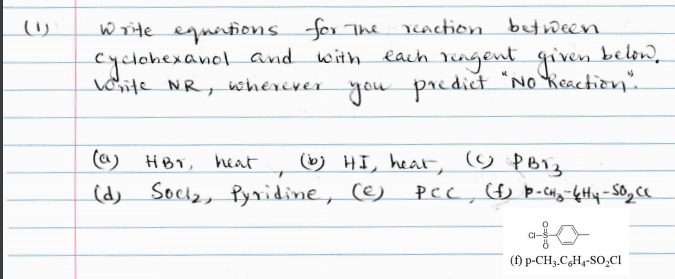 (1) Write equations for the reaction between
cyclohexanol and with each reagent given below.
Write NR, wherever you predict "No Reaction".
(a) HBr, heat, (b) HI, heat, (c) PBr3
(d) SOCl2, Pyridine, (e) PCC, (f) p-CH3-C6H4-SO2Cl
O
Cl-S
O
(f) p-CH3-C6H4-SO2Cl